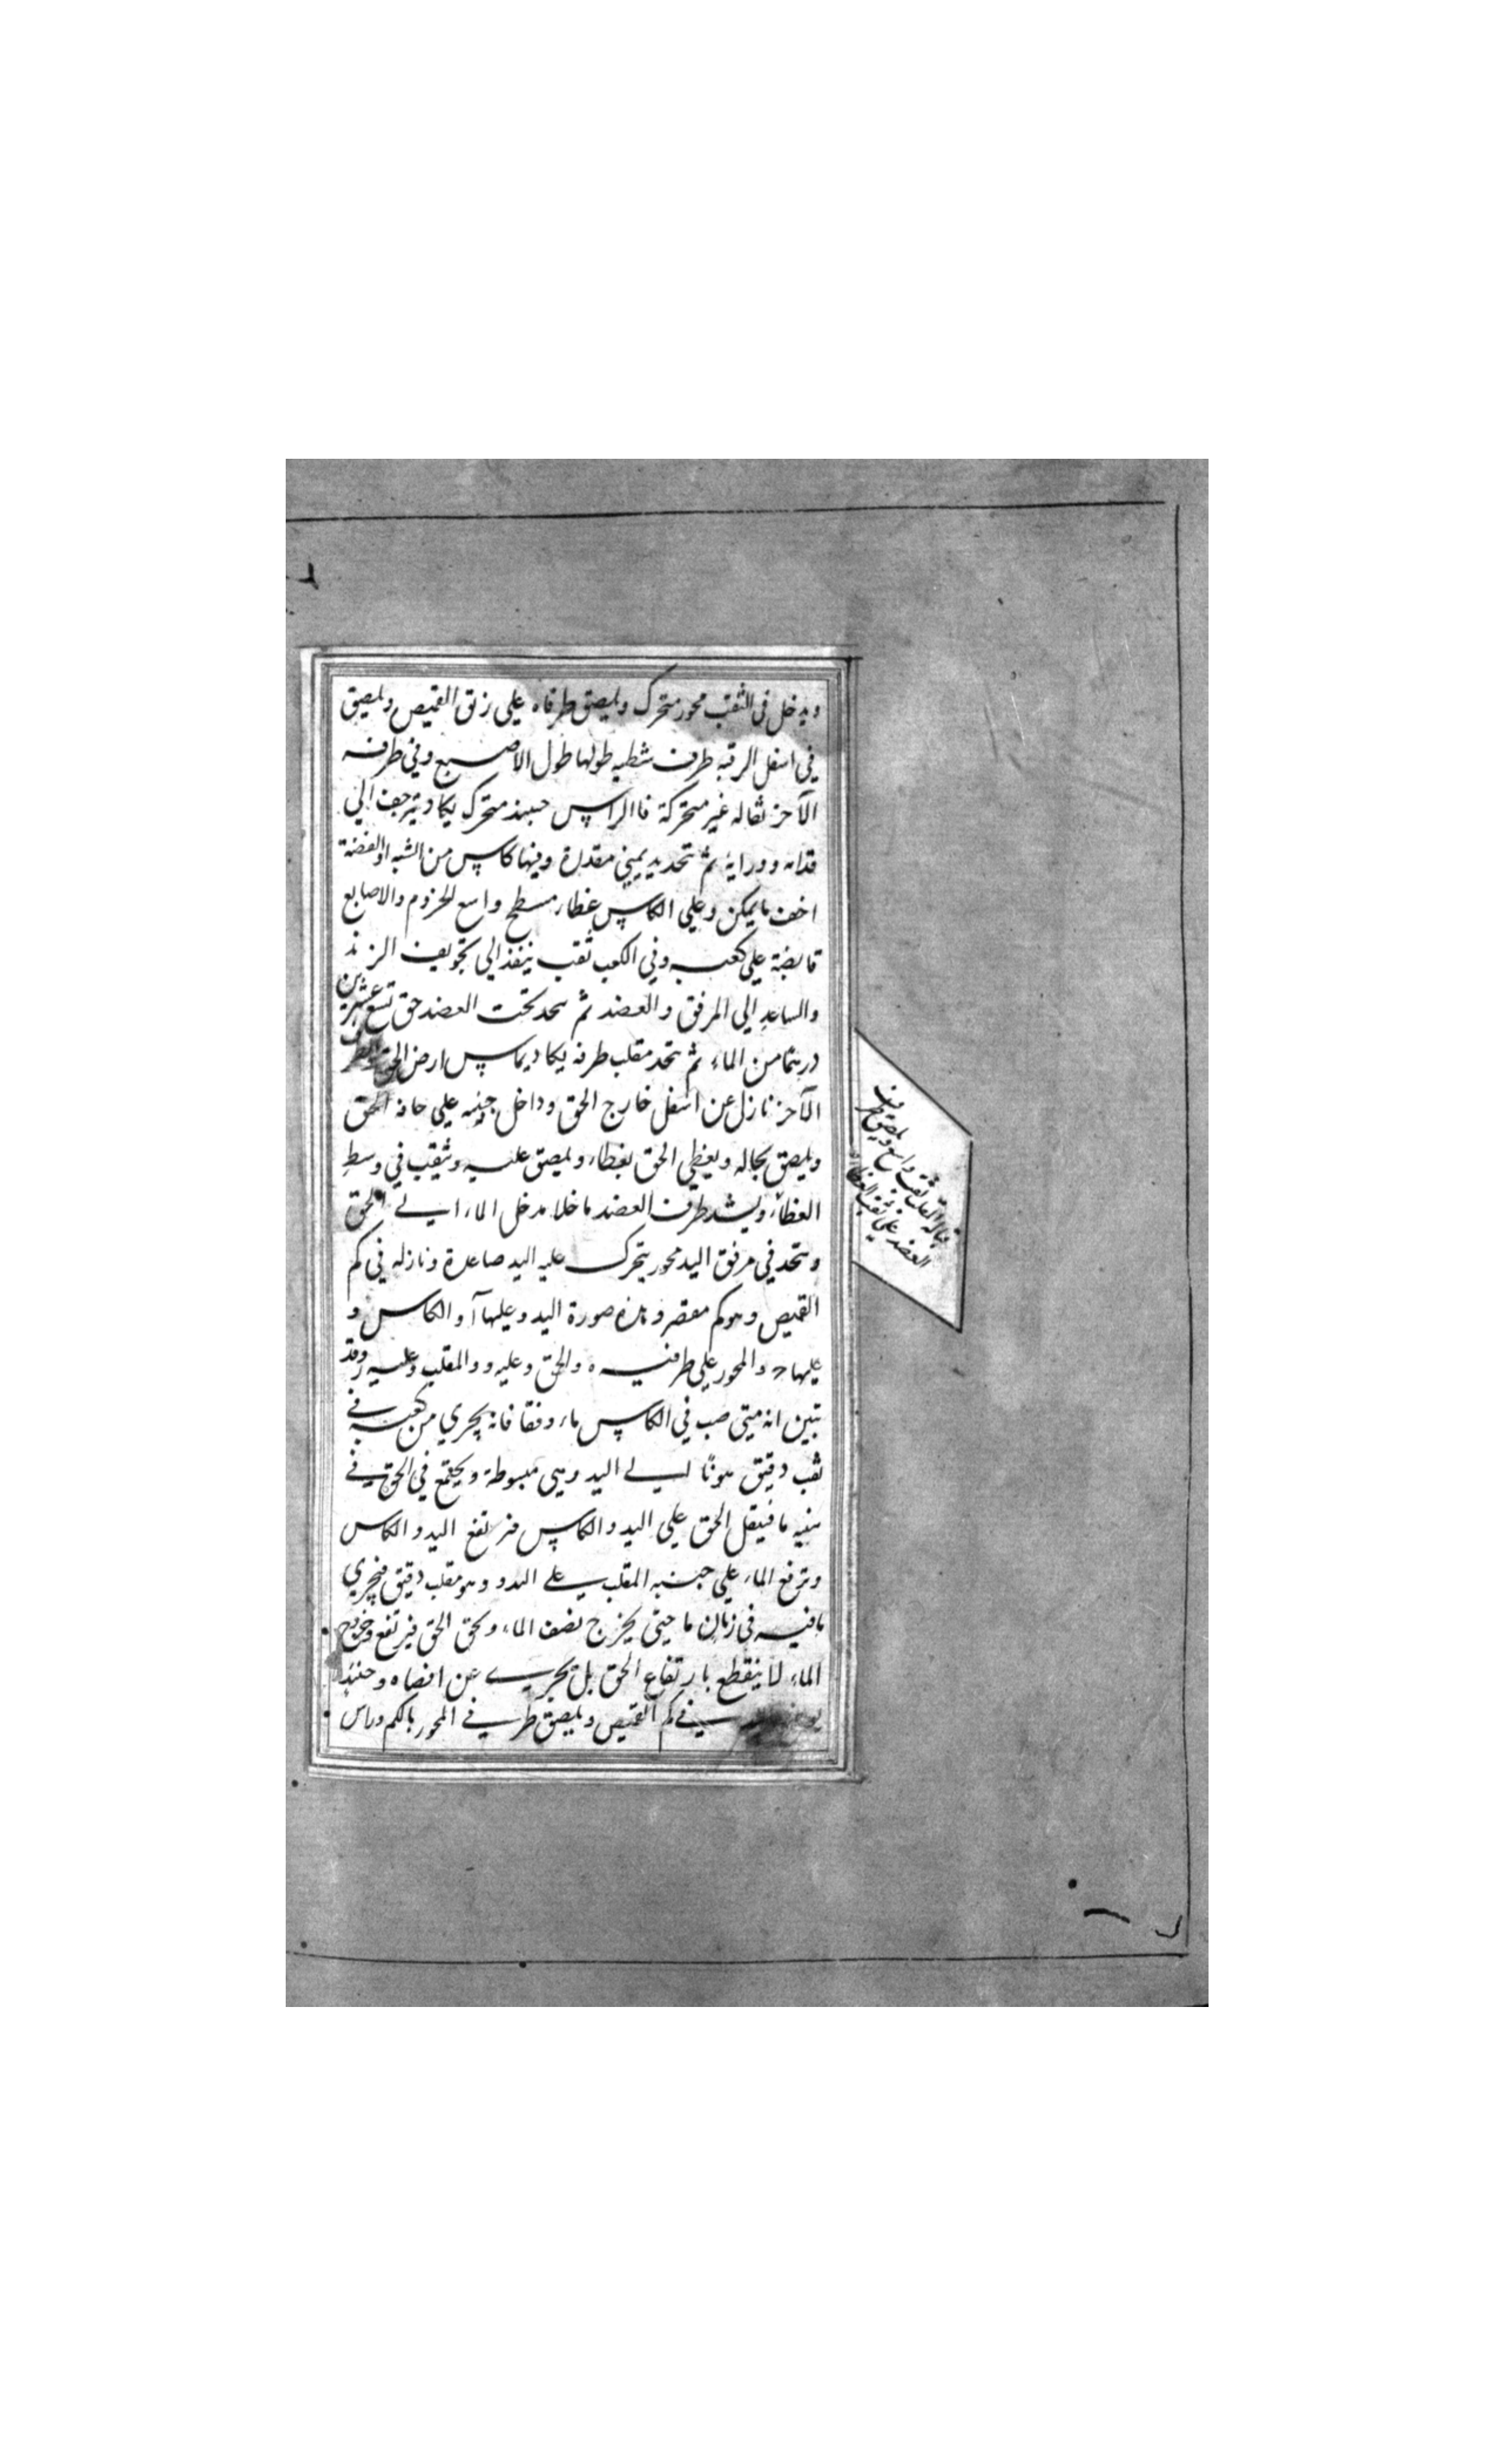 ويدخل في الثقب محور متحرك ويلصق طرفاه على زيق القميص ويلصق
في اسفل الرقبه طرف شظيه طولها طول الاصبع وفي طرفه
الآخر ثقاله غير متحركة فاالراس حينئذ متحرك يكاد يترجف الي
قدامه وورايه ثم تتخذ يد يمني مقدرة وفيها كاس من الشبه او الفضة
اخف ما يمكن وعلي الكاس غطاء مسطح واسع الخروم والاصابع
قابضة علي كعبه وفي الكعب ثقب ينفذ الي تجويف الزند
والساعد الي المرفق والعضد ثم يتخذ تحت العضد حق تسع عشرين
درهما من الماء ثم يتخذ مقلب طرفه يكاد يماس ارض الحق
الآخر نازل عن اسفل خارج الحق وداخل جنبه علي حافة الحق
ويلصق بحاله ويغطي الحق بغطاء ويلصق عليه ويثقب في وسط
الغطاء ويشد طرف العضد ما خلا مدخل الماء الي الحق
ويتخذ في مرفق اليد محور يتحرك عليه اليد صاعدة ونازله في كم
القميص وهو كم مقصر وهذه صورة اليد وعليها آ والكاس و
عليها ح والمحور علي طرفيه ه والحق وعليه و والمقلب وعليه ز وقد
تبين انه متي صب في الكاس ماء وفقا فانه يجري من كعبه في
ثقب دقيق هونا الي اليد وهي مبسوطة ويجتمع في الحق في
بنيه ما فيثقل الحق علي اليد والكاس فترتفع اليد والكاس
وترفع الماء علي حنيه المقلب علي وهو مقلب دقيق فيجري
ما فيه في زمان ما حتي يخرج نصف الماء ويخف الحق فيرتفع وخروج
الماء لا ينقطع بارتفاع الحق بل يجري عن اقصاه وحينئذ
في كم القميص ويلصق طرفي المحور بالكم وراس
ثقب واسع ويلصق طرف
العضد علي ثقب الغطاء